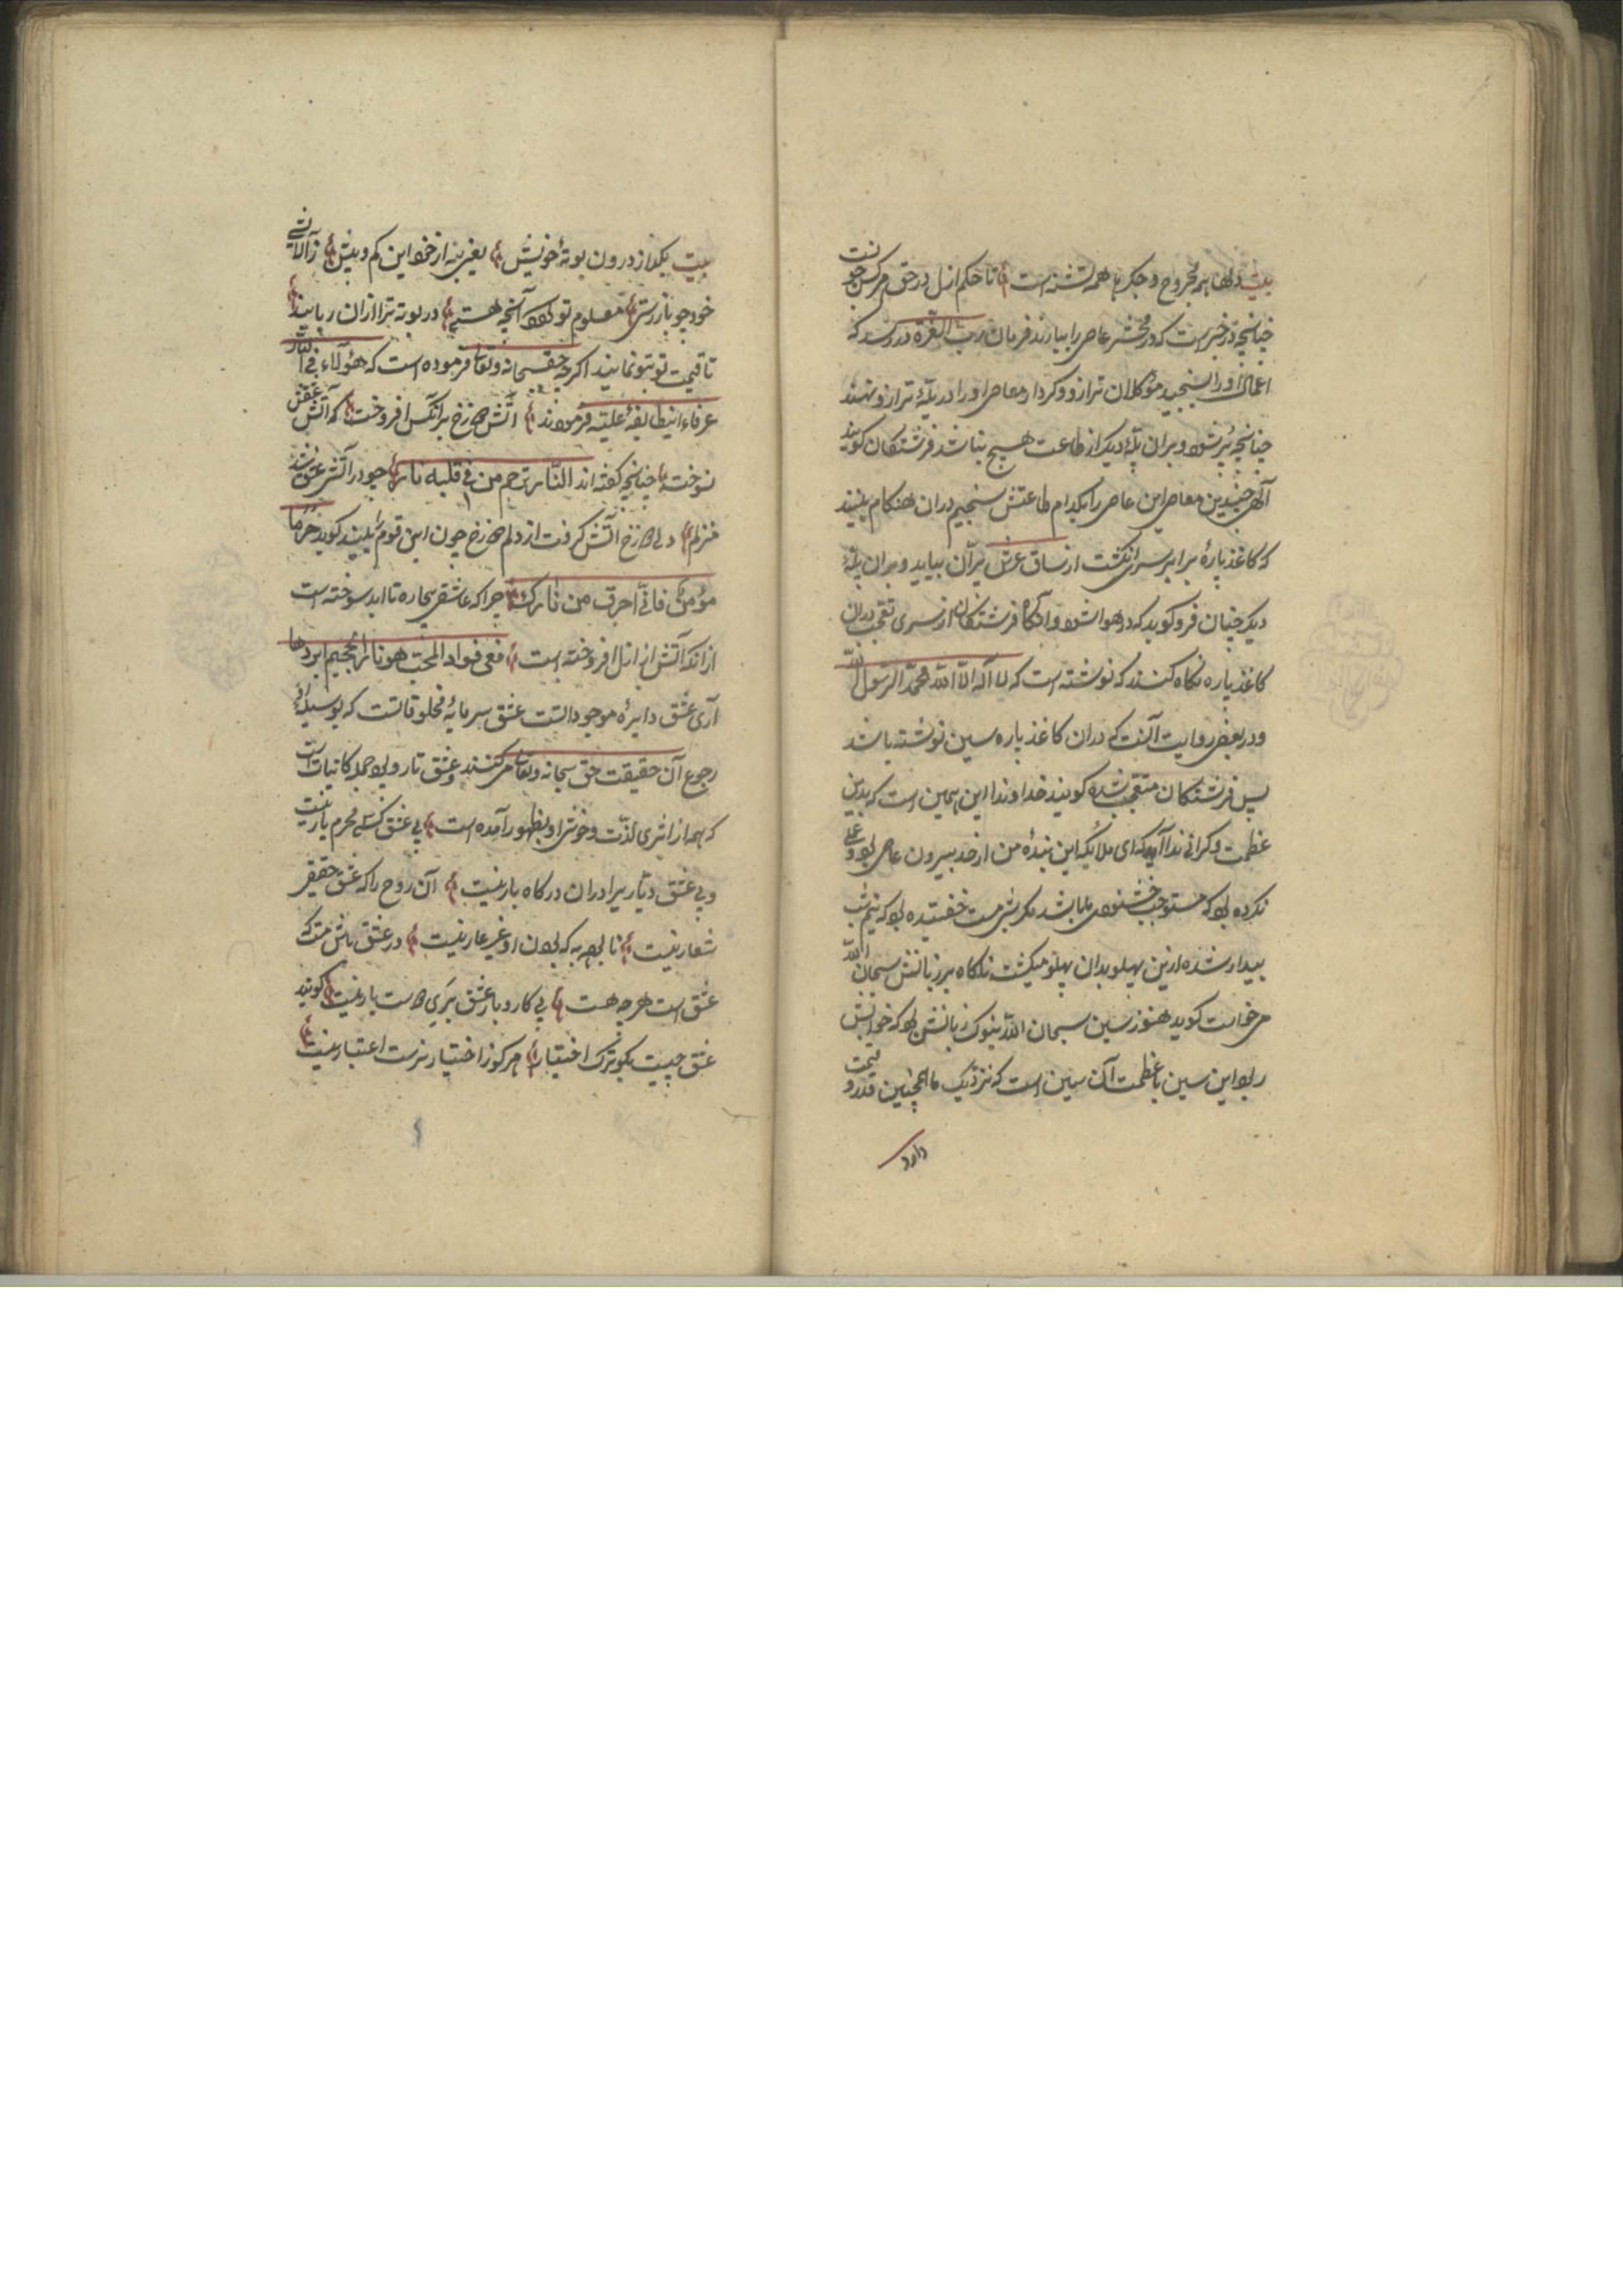 بیت دلها همه مجروح و جگرها همه تشنه است تا حکم ازل در حق هر کس چونست
چنانچه در خبرست که در محشر عاصی را بیارند فرمان رب العزة در رسد که
اعمال او را بسنجید موکلان ترازو و کردار معاصی او را در پلهٔ ترازو نهند
چنانچه پر شود و بران پلهٔ دیگر از طاعت هیچ نباشد فرشتگان گویند
الهی چندین معاصی این عاصی را بکدام طاعتش سنجیم دران هنگام بینند
که کاغذ پارهٔ برابر سر انگشت از ساق عرش پران بیاید و بران پلهٔ
دیگر چنان فرو کوبد که در هوا شود وانگاه فرشتگان از سر تعجب دران
کاغذ پاره نگاه کنند که نوشته است که لا اله الا الله محمد الرسول الله
و در بعضی روایت آنست که دران کاغذ پاره سین نوشته باشد
پس فرشتگان متعجب شده گویند خداوندا این چه سین است که بدین
عظمت و گرانی ندا آید که ای ملائکه این بندهٔ من از حد بیرون عاصی بود و عملی
نکرده بود که مستوجب خوشنودی ما باشد مگر شبی مست خفتیده بود که نیم شب
بیدار شده ازین پهلو بدان پهلو میگشت ناگاه بر زبانش سبحان الله
می خواست گوید هنوز سین سبحان الله بنوک زبانش بود که خوابش
ربود این سین با عظمت آن سین است که نزدیک ما اینچنین قدر و قیمت
دارد
بیت بگداز درون بوتهٔ خویش بغیر نه از خود این کم و بیش ز آلایش
خود چو باز رستی معلوم تو گردد آنچه هستی در بوته ترا ازان ربایند
تا قیمت تو بتو نمایند اگرچه حق سبحانه و تعالی فرموده است که هؤلاء فی النار
عرفاء اینطایفهٔ علیه فرمودند آتش دوزخ بر انکس افروخت که آتش عشقش
نسوخته چنانچه گفته اند النار ترحم من فی قلبه نار چو در آتش عشق شد
منزلم دل دوزخ آتش گرفت از دلم دوزخ چون این قوم را بیند گوید جز یا
مؤمن فانی احرق من نارک چرا که عاشق بیچاره تا ابد سوخته است
ازانکه آتش از ازل افروخته است ففی فواد المحب هو نار الجحیم ابردها
آری عشق دایرهٔ موجوداتست عشق سرمایهٔ مخلوقاتست که بوسیلهٔ او
رجوع آن حقیقت حق سبحانه و تعالی می کنند و عشق تار و پود جمله کائنات است
که همه از اثری لذت و خوشی او بظهور آمده است بی عشق کسی محرم یار نیست
و بی عشق دیار را دران درگاه بار نیست آن روح را که عشق حقیقی
شعار نیست نا بود به که بودن او غیر عار نیست در عشق باش مست که
عشق است هر چه هست بی کار و بار عشق بری دوست بار نیست گویند
عشق چیست بگو ترک اختیار هر کو ز اختیار نرست اعتبار نیست